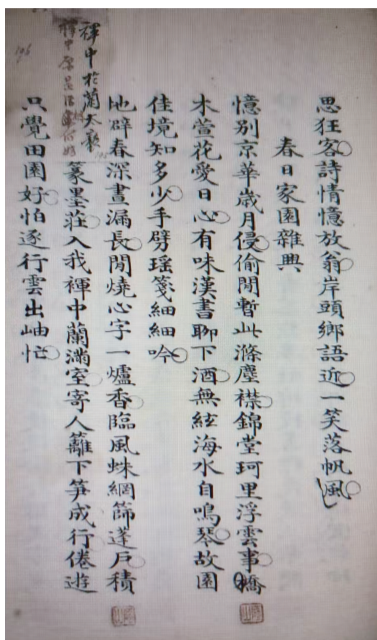 思狂客詩情憶放翁岸頭鄉語近一笑落帆風
春日家園雜興
憶別京華歲月侵偷閒暫此滌塵襟錦堂珂里浮雲事驕
木萱花愛日心有味漢書聊下酒無絃海水自鳴琴故園
佳境知多少手劈瑤箋細細吟
地辟春深晝漏長閒燒心字一爐香臨風蛛網篩蓬戶積
篆墨莊入我褌中蘭滿室寄人籬下笋成行倦遊
只覺田園好怕逐行雲出岫忙
褌中於蘭太褻
褌中